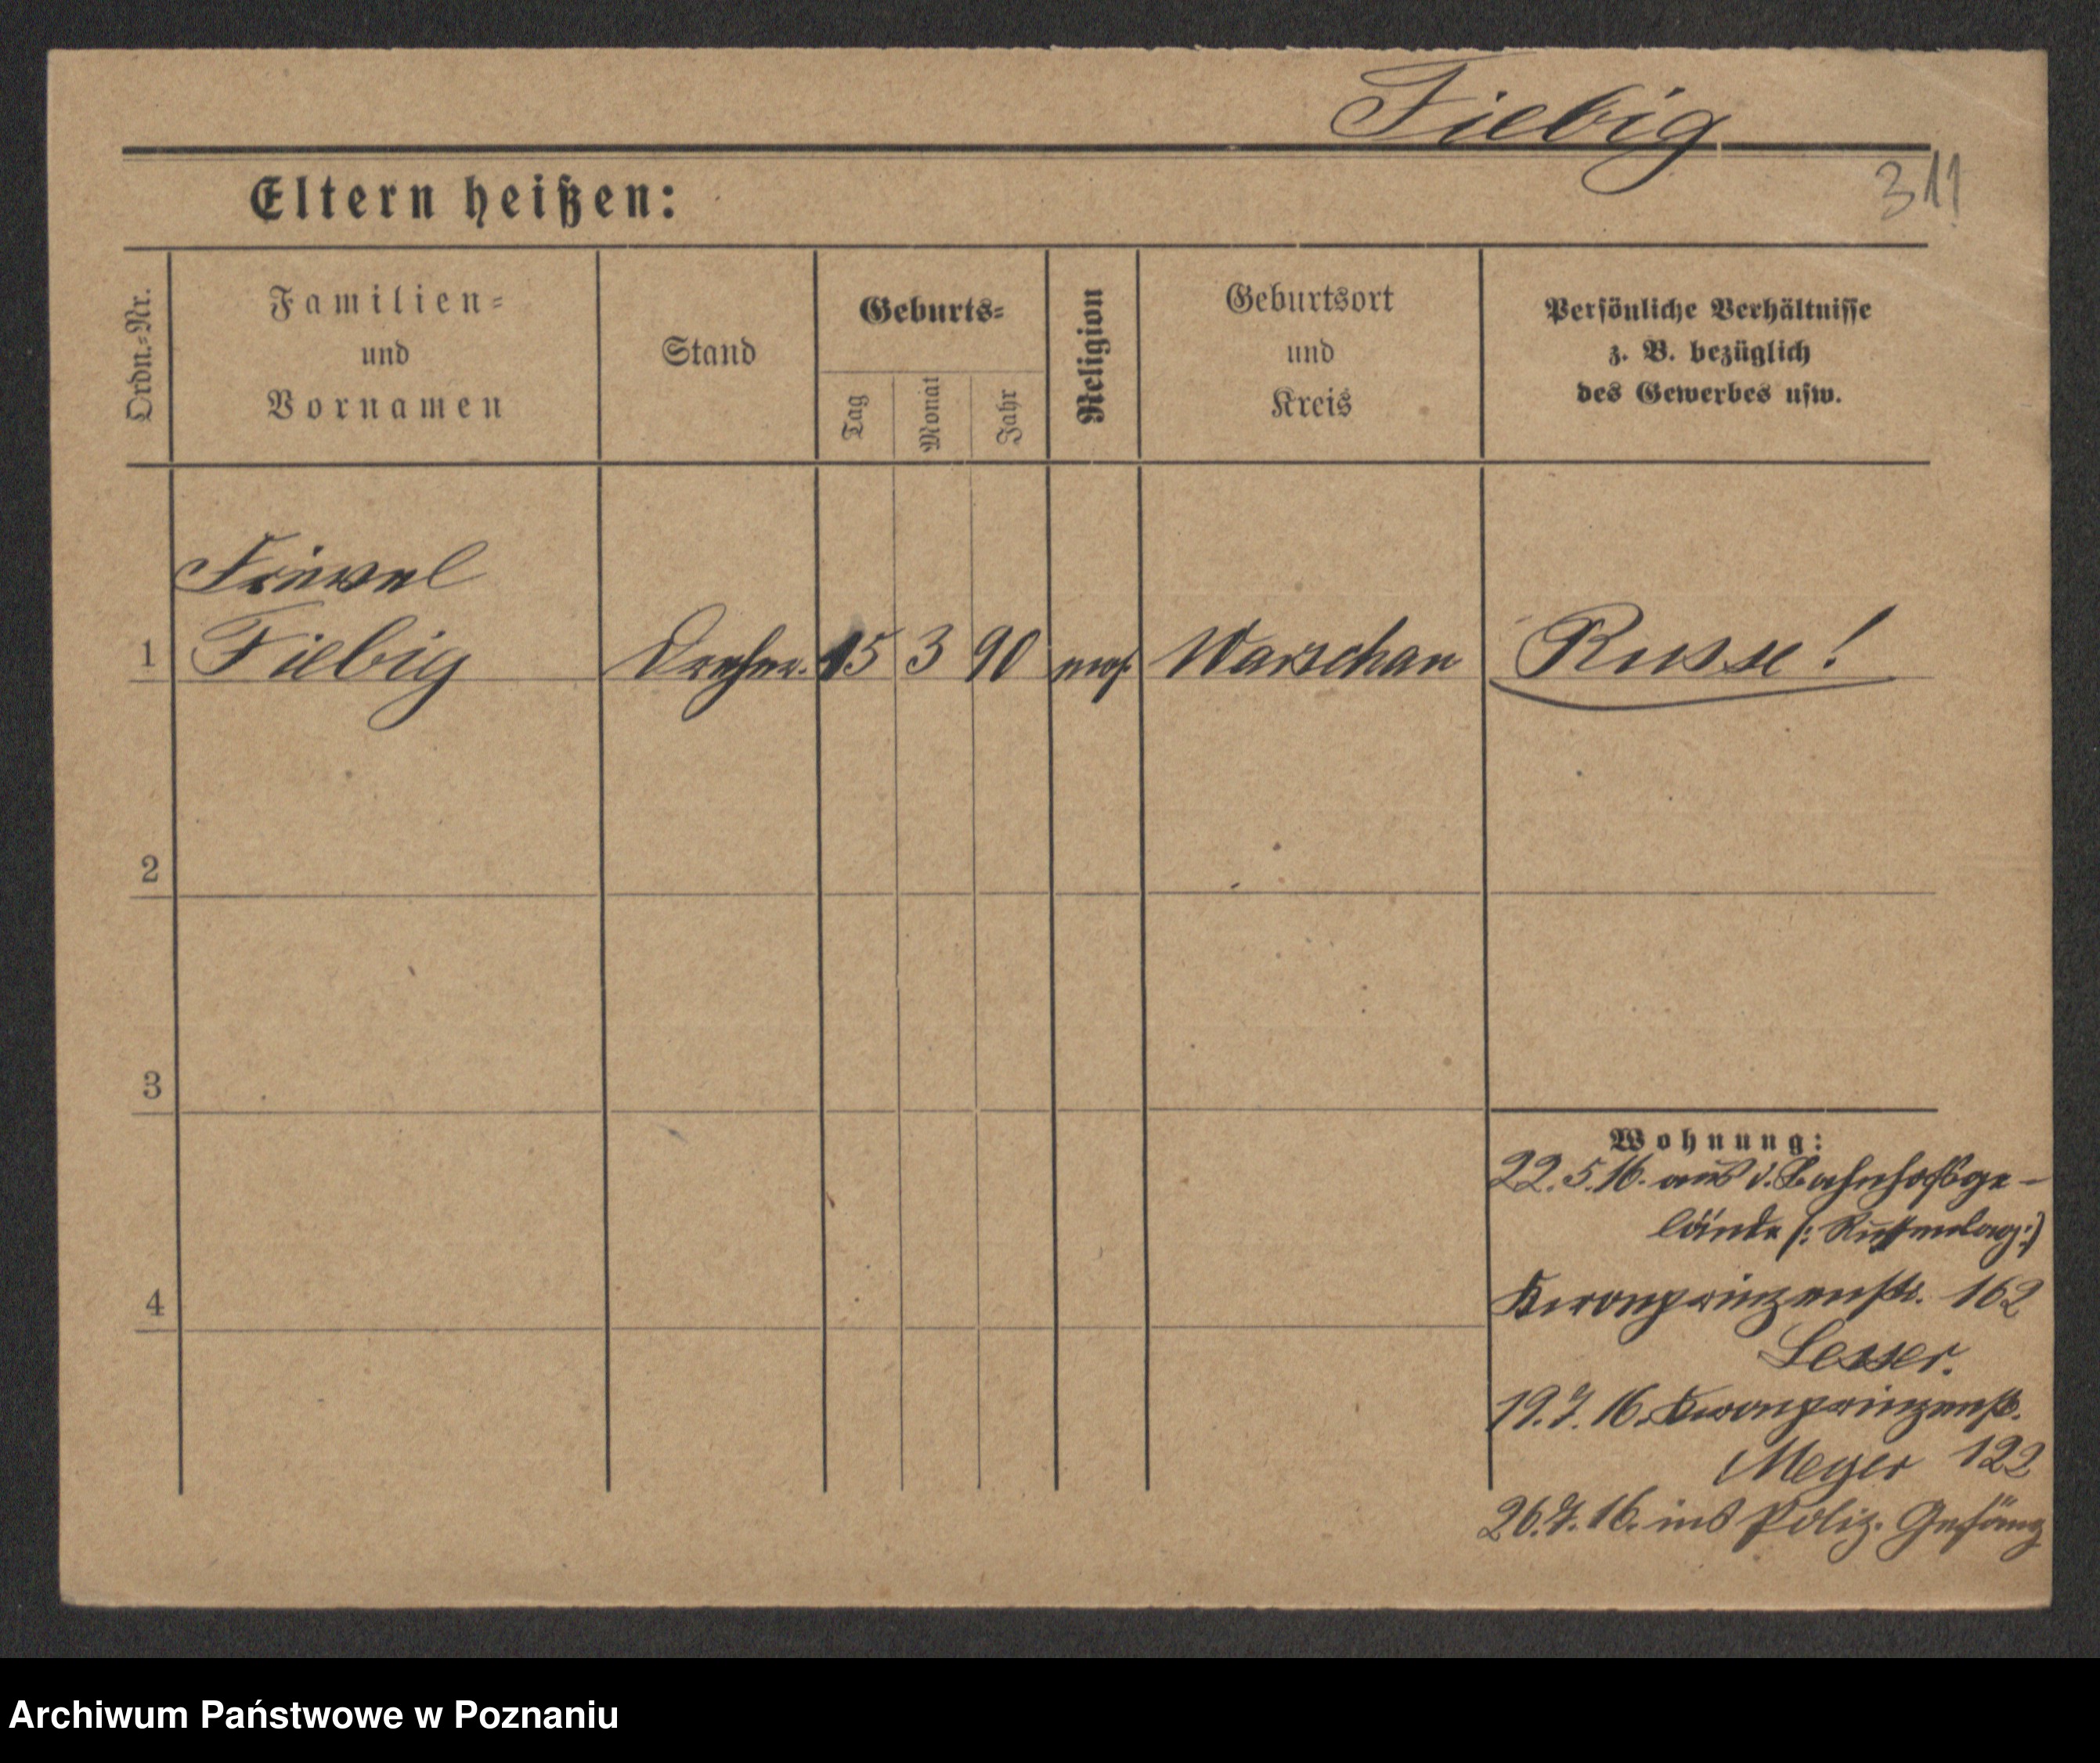 Fiebig
311
Eltern heißen:
Ordn.-Nr.
Familien-
und
Vornamen
Stand
Geburts-
Tag
Monat
Jahr
Religion
Geburtsort
und
Kreis
Persönliche Verhältnisse
z. B. bezüglich
des Gewerbes usw.
1
Fiebig
Dreher. 15 3 90 mos. Warschau Russe!
2
3
4
Wohnung:
22.5.16. aus d. Bahnhofsge-
lände (: Russenlag :)
Kronprinzenstr. 162
Lesser.
19.7.16. Kronprinzenstr.
Meyer 122
26.7.16. ins Poliz. Gefäng
Archiwum Państwowe w Poznaniu